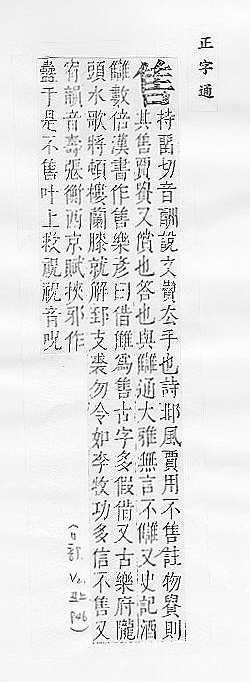 正字通
售
持䛠切音酬說文賣去手也詩邶風賈用不售註物賣則
其售賈賣又償也答也與讎通大雅無言不讎又史記酒
讎數倍漢書作售樂彥曰借讎為售古字多假借又古樂府隴
頭水歌將頓樓蘭膝就解郅支裘勿令如李牧功多信不售又
宥韻音壽張衡西京賦挾邪作
蠱于是不售叶上救視視音呪